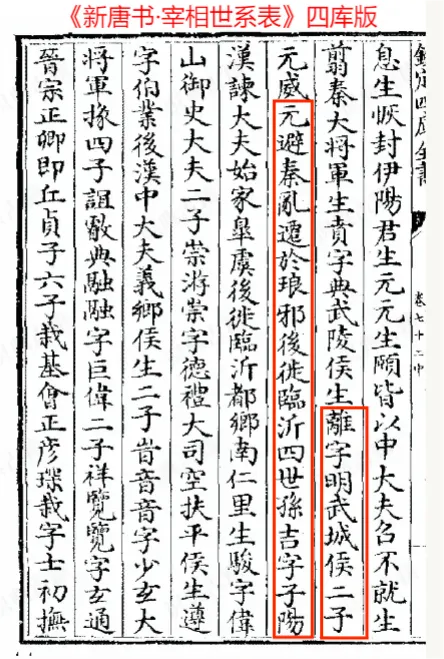 《新唐书·宰相世系表》四库版
欽定四庫全書
卷七十二中
息生恢封伊陽君生元元生頤皆以中大夫召不就生
翦秦大將軍生賁字典武陵侯生離字明武城侯二子
元威元避秦亂遷於琅邪後徙臨沂四世孫吉字子陽
漢諫大夫始家臯虞後徙臨沂都鄉南仁里生駿字偉
山御史大夫二子崇游崇字德禮大司空扶平侯生遵
字伯業後漢中大夫義鄉侯生二子旹音音字少玄大
將軍掾四子誼叡典融融字巨偉二子祥覽覽字玄通
晉宗正卿即丘貞子六子裁基會正彥琛裁字士初撫